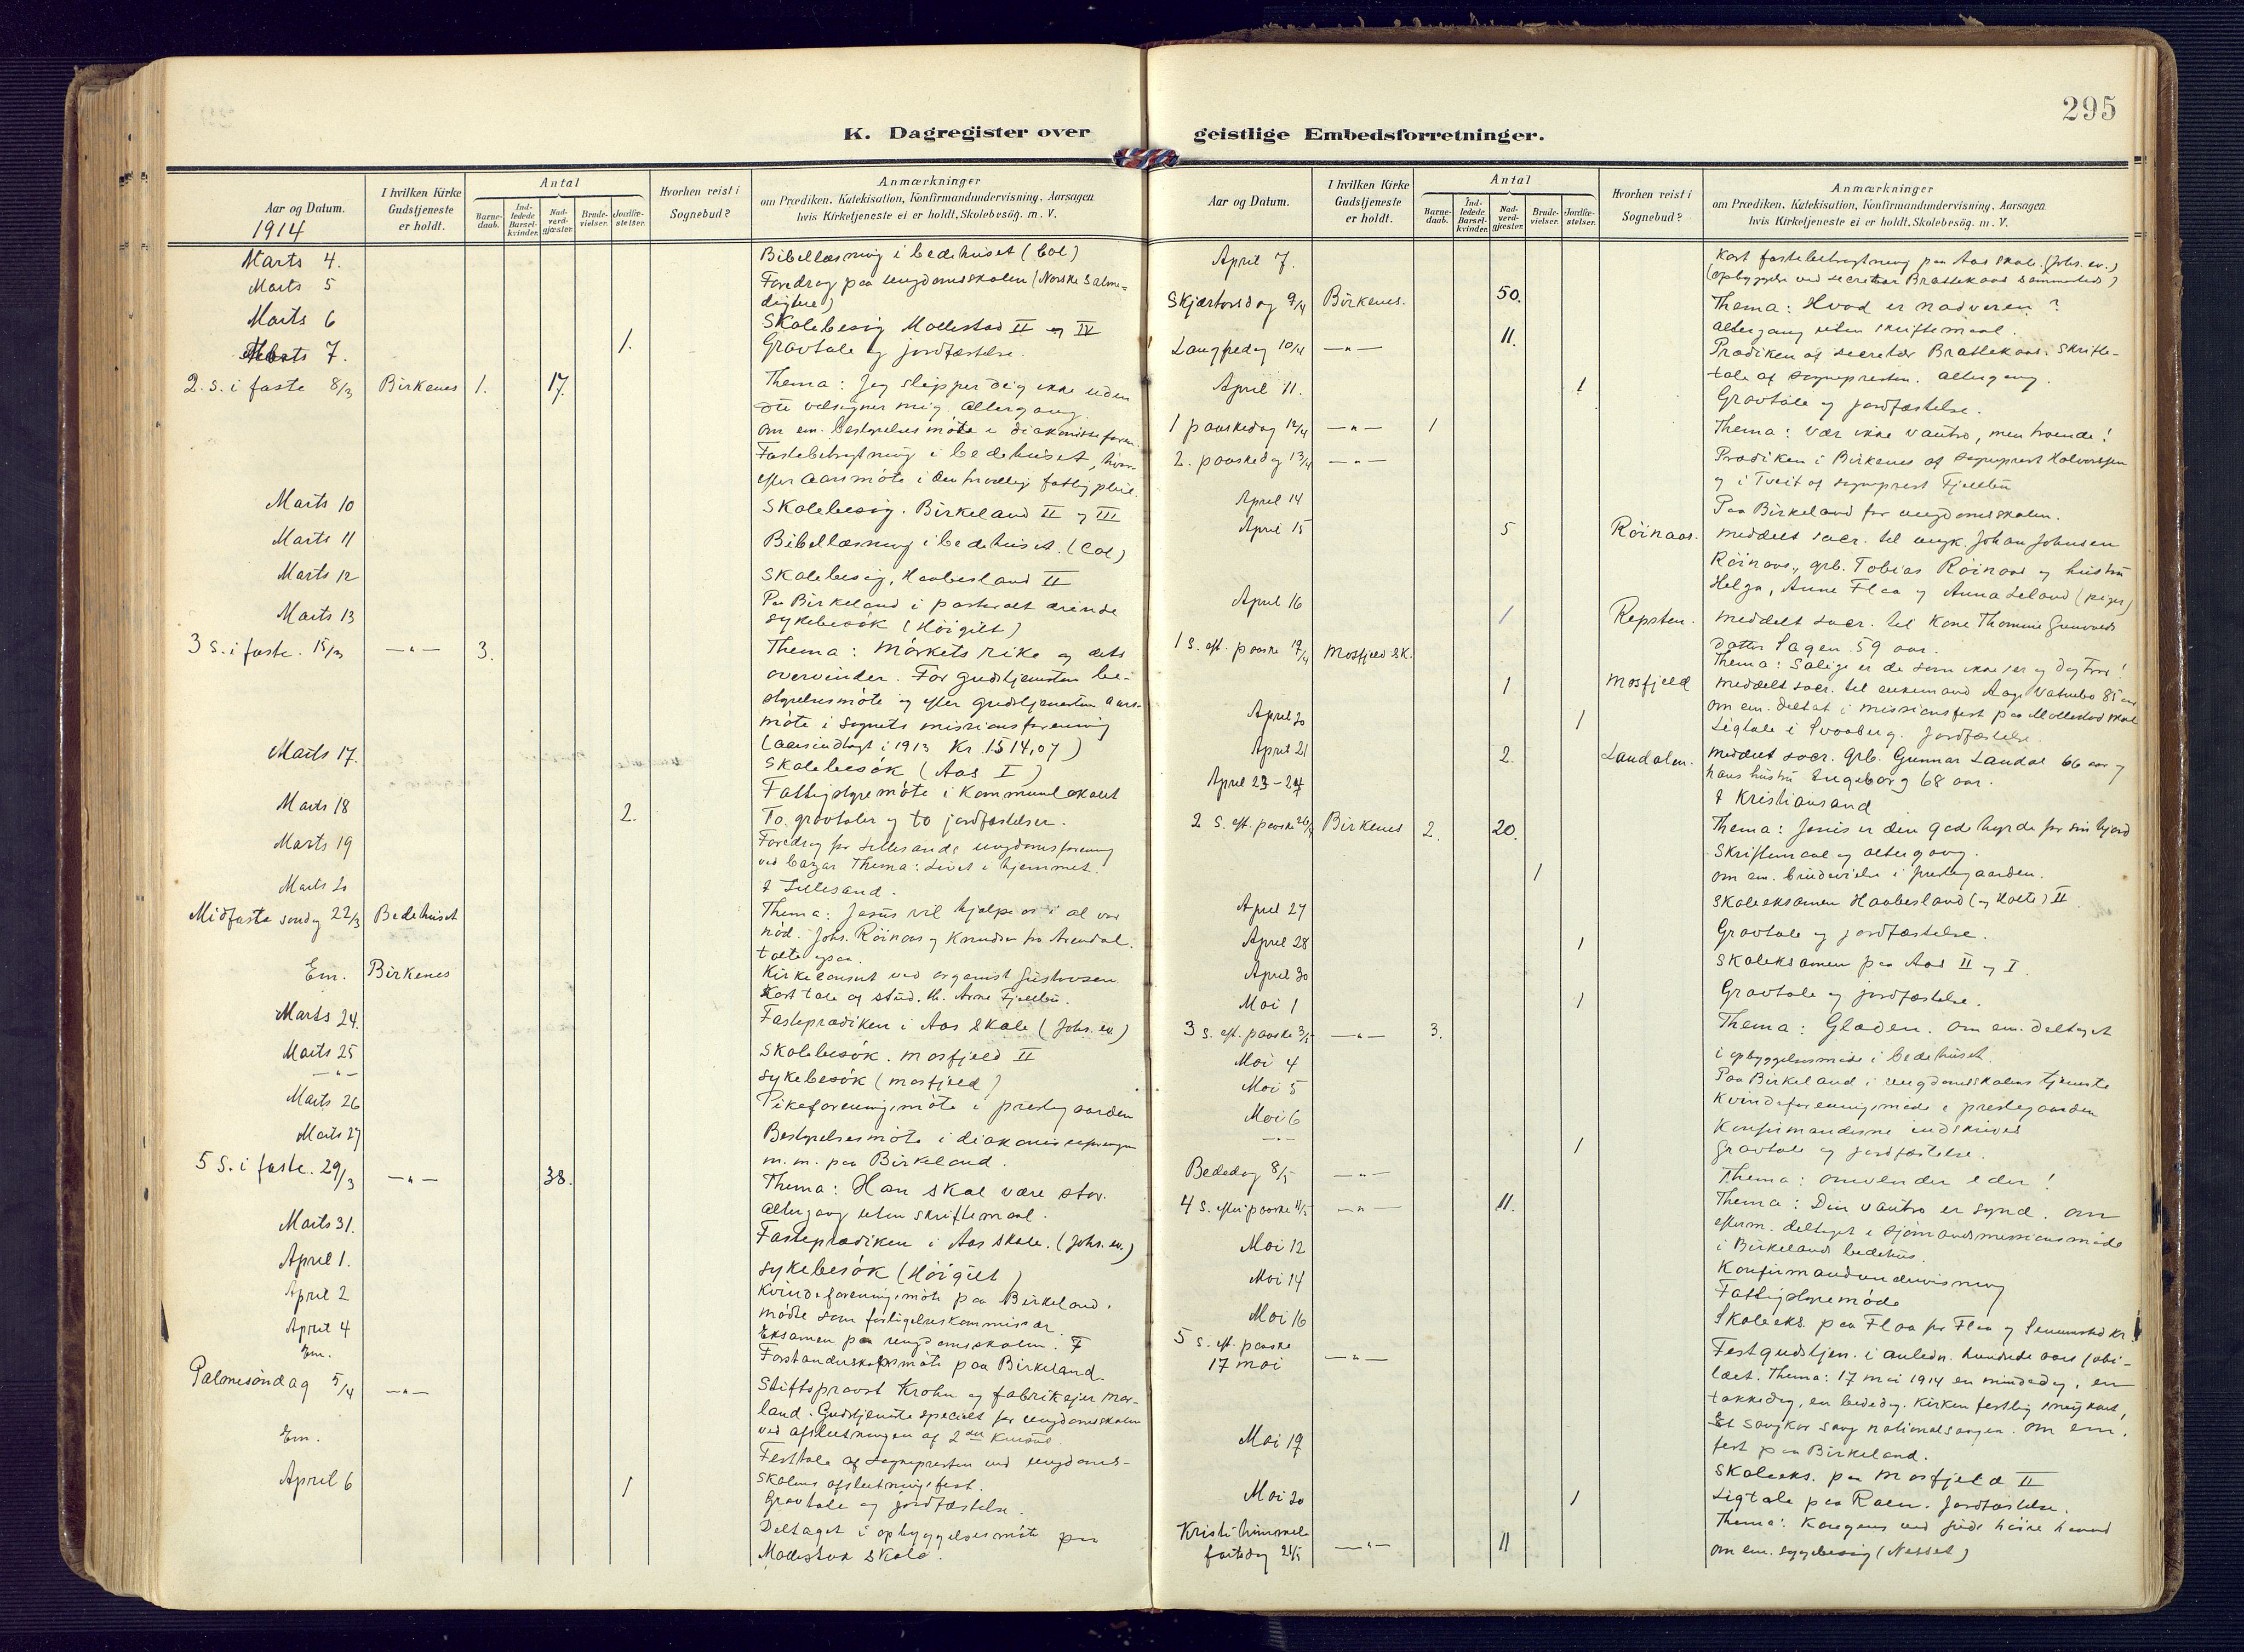 295
K. Dagregister over geistlige Embedsforretninger.
Aar og Datum.
1914
I hvilken Kirke Gudstjeneste er holdt.
Antal
Barne-daab.
Ind-ledede Barsel-kvinder.
Nad-verd-gjæster.
Brude-vielser.
Jordfæ-stelser.
Hvorhen reist i Sognebud?
Anmærkninger
om Prædiken, Katekisation, Konfirmandundervisning, Aarsagen
hvis Kirketjeneste ei er holdt, Skolebesøg. m. V.
Marts 4. Bibellæsning i bedehuset (Col)
Marts 5 Foredrag paa ungdomsskolen (Norske Salme-
digtere)
Marts 6 Skolebesøg Mollestad II og IV
Marts 7. 1. Gravtale og jordfæstelse.
2. S. i faste 8/3 Birkenes 1. 17. Thema: Jeg slipper dig ikke uden
du velsigner mig. Altergang.
Om em. bestyrelsesmöte i diakonisseforen.
Fastebetragtning i bedehuset, hvor-
efter aarsmöte i den frivillig fattigpleie.
Marts 10 Skolebesøg. Birkeland II og III
Marts 11 Bibellæsning i bedehuset. (Col)
Marts 12 Skolebesøg, Haabesland II
Marts 13 Paa Birkeland i pastoralt ærinde
sykebesök (Höigilt)
3 S. i faste. 15/3 —"— 3. Thema: Mörkets rike og dets
overvinder. Før gudstjenesten be-
styrelsesmöte og efter gudstjenesten aars-
möte i sognets missionsforening
(aarsindtægt i 1913 Kr. 1514,07)
Marts 17. Skolebesök (Aas I)
Fattigstyremöte i Kommunelokalet
Marts 18 2. To gravtaler og to jordfæstelser.
Marts 19 Foredrag for Lillesands ungdomsforening
ved bazar Thema: Livet i hjemmet.
Marts 20 f Lillesand.
Midfaste søndag 22/3 Bedehuset Thema: Jesus vil hjelpe os i al vor
nöd. Johs. Röinaas og Knudsen fra Arendal
talte ogsaa.
Em. Birkenes Kirkekonsert ved organist Gustavsen
Kort tale af stud. th. Arne Fjellbu.
Marts 24. Fasteprædiken i Aas skole (Johs. ev.)
Marts 25 Skolebesök. Mosfjeld II
—"— sykebesök (Mosfjeld)
Marts 26 Pikeforeningsmöte i prestegaarden
Marts 27 Bestyrelsesmöte i diakonisseforeningen
m. m. paa Birkeland.
5 S. i faste. 29/3 —"— 38. Thema: Han skal være stor.
Altergang uten skriftemaal.
Marts 31. Fasteprædiken i Aas skole. (Johs. ev.)
April 1. sykebesök (Höigilt)
April 2 Kvindeforeningsmöte paa Birkeland.
mödte som forligelseskommissær.
April 4 Eksamen paa ungdomsskolen. F
Em. Forstanderskapsmöte paa Birkeland.
Palmesöndag 5/4 —"— Stiftsprovst Krohn og fabrikejer Mor-
land. Gudstjeneste specielt for ungdomsskolen
ved afslutningen af 2den kursus.
Em. Festtale af sognepresten ved ungdoms-
skolens afslutningsfest.
April 6 1 Gravtale og jordfæstelse.
Deltaget i opbyggelsesmöte paa
Mollestad skole.
Aar og Datum.
I hvilken Kirke Gudstjeneste er holdt.
Antal
Barne-daab.
Ind-ledede Barsel-kvinder.
Nad-verd-gjæster.
Brude-vielser.
Jordfæ-stelser.
Hvorhen reist i Sognebud?
Anmærkninger
om Prædiken, Katekisation, Konfirmandundervisning, Aarsagen
hvis Kirketjeneste ei er holdt, Skolebesøg. m. V.
April 7. Kort fastebetragtning paa Aas skole. (Johs. ev.)
(opbyggelse ved secretær Brattekaas sammesteds)
Skjærtorsdag 9/4 Birkenes. 50. Thema: Hvad er nadveren?
Altergang uten skriftemaal.
Langfredag 10/4 —"— 11. Prædiken af secretær Brattekaas. Skrifte-
tale af sognepresten. Altergang.
April 11. 1 Gravtale og jordfæstelse.
1 paaskedag 12/4 —"— 1 Thema: Vær ikke vantro, men troende!
2. paaskedag 13/4 —"— Prædiken i Birkenes af sogneprest Halvorssen
og i Tveit af sogneprest Fjellbu
April 14 Paa Birkeland for ungdomsskolen.
April 15 5 Röinaas. meddelt sacr. til ungk. Johan Johnsen
Röinaas, grb. Tobias Röinaas og hustru
Helga, Anne Flaa og Anna Leland (piger)
April 16 1 Repsten. meddelt sacr. til Kone Thomine Gunvalds
datter Lagen. 59 aar.
1 S. eft. paaske 17/4 Mosfjeld Sk. Thema: Salige er de som ikke ser og dog tror!
1 Mosfjeld meddelt sacr. til enkemand Aage Vatnebo 85 aar
Om em. deltat i missionsfest paa Mollestad skole
April 20 1 Ligtale i Svaaberg. Jordfæstelse.
April 21 2. Laudalen. meddelt sacr. Grb. Gunnar Laudal 66 aar og
hans hustru Ingeborg 68 aar.
April 23-24 f Kristiansand
2 S. eft. paaske 26/4 Birkenes 2. 20. Thema: Jesus er den gode hyrde for sin hjord
Skriftemaal og altergang.
1 om em. brudevielse i prestegaarden.
April 27 Skoleeksamen Haabesland (og Holte) II
April 28 1 Gravtale og jordfæstelse.
April 30 Skoleksamen paa Aas II og I.
Mai 1 1 Gravtale og jordfæstelse.
3 S. eft. paaske 3/5 —"— 3. Thema: Glæden. Om em. deltaget
i opbyggelsesmöde i bedehuset.
Mai 4 Paa Birkeland i ungdomsskolens tjeneste
Mai 5 Kvindeforeningsmöde i prestegaarden
Mai 6 Konfirmanderne indskrives
—"— 1 Gravtale og jordfæstelse.
Bededag 8/5 —"— Thema: omvender eder!
4 S. efter paaske 11/5 —"— 11. Thema: Din vantro er synd. Om
efterm. deltaget i sjömandsmissionsmöde
i Birkelands bedehus.
Mai 12 Konfirmandundervisning
Mai 14 Fattigstyremöde
Mai 16 Skoleeks. paa Flaa for Flaa og kr.
5 S. eft. paaske
17 mai —"— Festgudstjen. i anledn. hundrede aars jubi-
læet. Thema: 17 mai 1914 en mindedag, en
takkedag, en bededag. Kirken festlig smykket,
Et sangkor sang nationalsangen. Om em.
fest paa Birkeland.
Mai 19 Skoleeks. paa Mosfjeld II
Mai 20 1 Ligtale paa Raen. Jordfæstelse.
Kristi himmel-
fartsdag 21/5 —"— 11 Thema: Kongens ved Guds höire haand
om em. sygebesøg (Nesset)